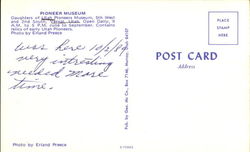 PIONEER MUSEUM
Daughters of Utah Pioneers Museum, 5th West
and 2nd South, Utah. Open Daily, 9
A.M. to 5 P.M. June to September. Contains
relics of early Utah Pioneers.
Photo by Erland Preece
was here 10/2/84
very intresting
needed more
time.
POST CARD
Address
Photo by Erland Preece